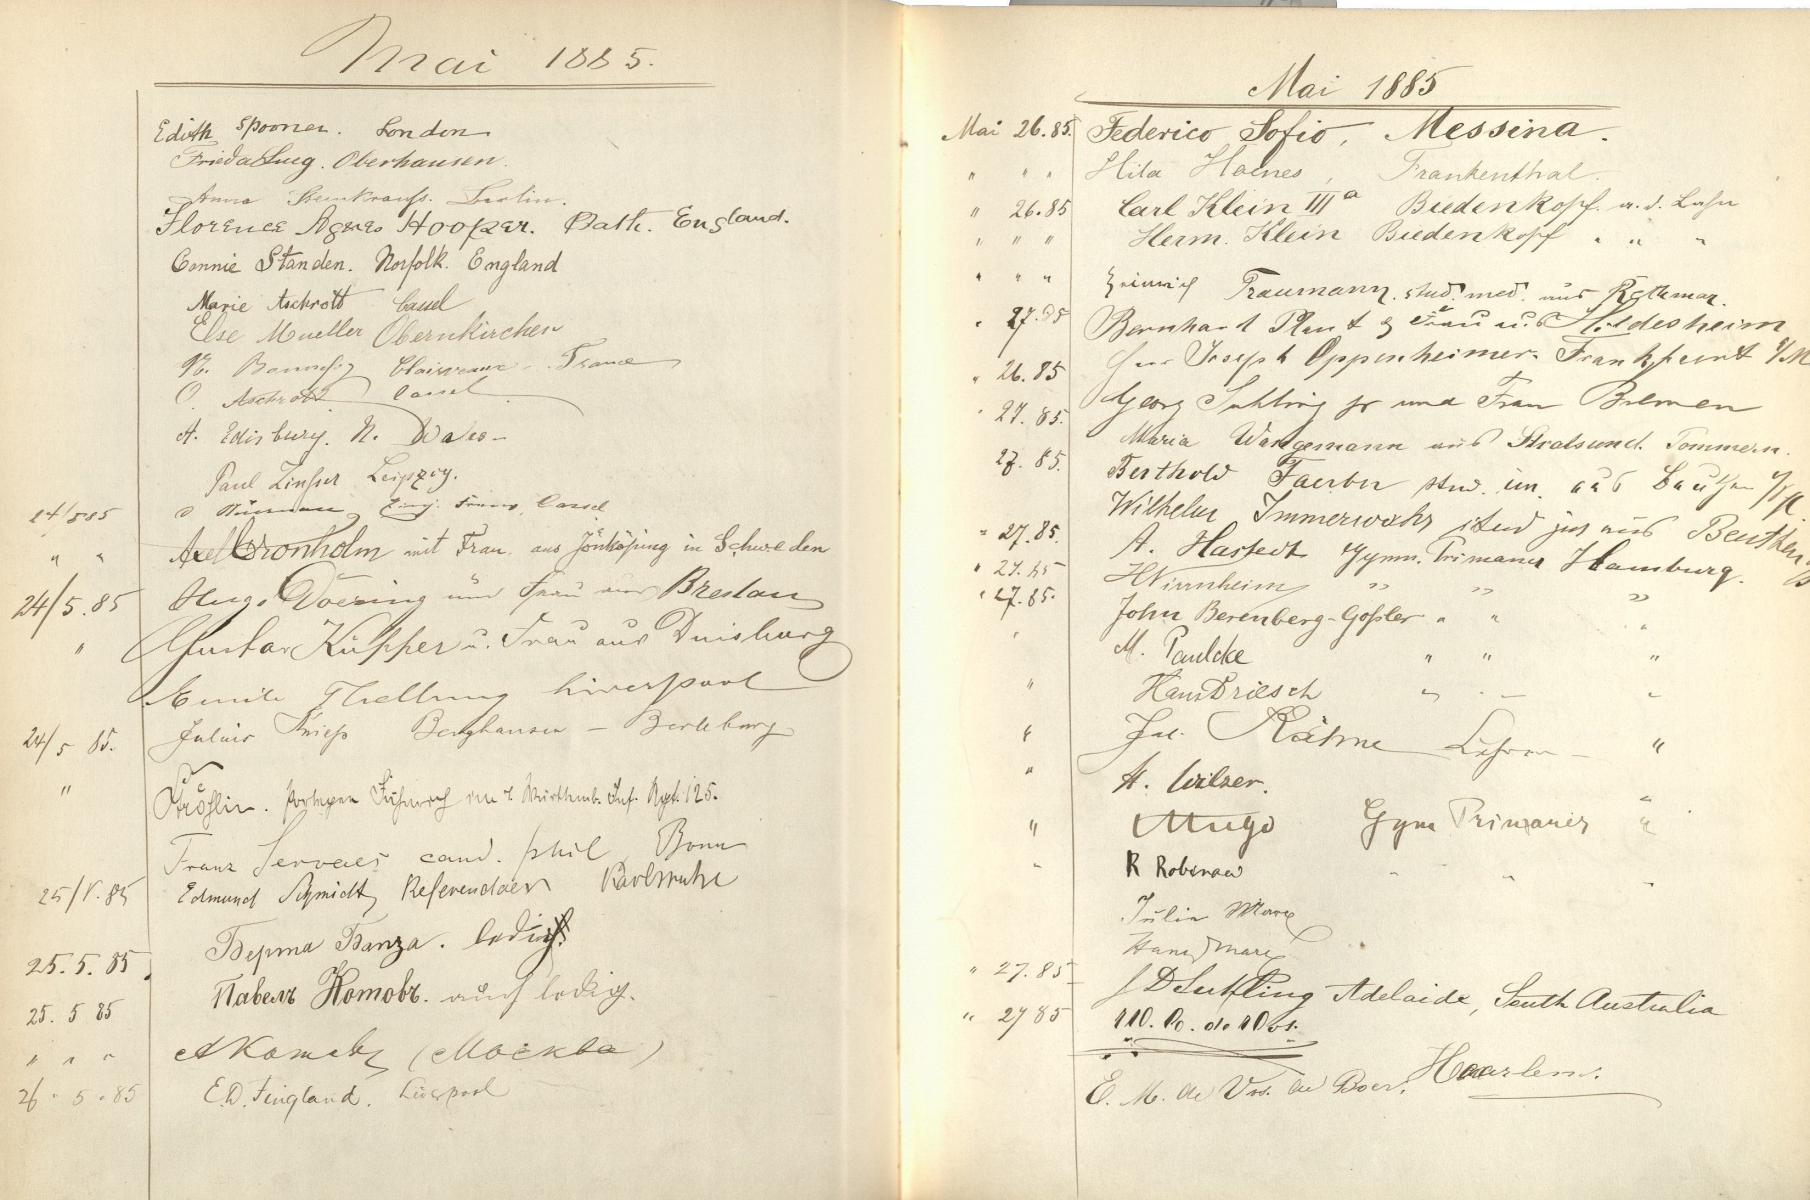 Mai 1885.
Edith Spooner. London
Frieda Lueg. Oberhausen.
Anna Berlin.
Florence Agnes Hooper. Bath. England.
Connie Standen. Norfolk. England
Marie Aschrott Cassel
Else Mueller Obernkirchen
Clairvaux - France
O. Aschrott Cassel
A. Edisbury. N. Wales-
Paul Leipzig.
24/5 85 Cassel
" " Axel Cronholm mit Frau aus Jönköping in Schweden
24/5.85 Hugo Doering und Frau aus Breslau
" Gustav Küpper u. Frau aus Duisburg
Emile Thellung Liverpool
24/5 85. Julius Berghausen - Berleburg
" Fähnrich im Würthmb. Inf. Rgt. 125.
Franz Servaes cand. phil Bonn
25/V.85 Edmund Schmidt, Referendaer Karlsruhe
25.5.85. Берта Банза. ledig!
25.5 85 Павелъ Котовъ. auch ledig.
" " " (Москва)
26.5.85 E.D. Fingland. Liverpool
Mai 1885
Mai 26.85. Federico Sofio, Messina.
" " " Hila Haines, Frankenthal.
" 26.85 Carl Klein IIIa Biedenkopf a. d. Lahn
" " " Herm. Klein Biedenkopf " " "
" " " Heinrich Traumann. stud. med. aus
" 27.85 Bernhard & Frau aus Hildesheim
" 26.85 Joseph Oppenheimer. Frankfurt a/M
" 27.85. Georg Suhling jr und Frau Bremen
Maria aus Stralsund. Pommern.
27.85. Berthold Faerber stud. aus
Wilhelm Immerwahr stud jur aus Beuthen
" 27.85. A. Hastedt Gymn. Primaner Hamburg.
" 27.85 HNirrnheim " " "
" 27.85. John Berenberg-Goßler " " "
" M. Paulcke " " "
" Hans Driesch " - -
" Jul. Lehrer - "
" A. Wilzer.
" Mugo Gym Primaner "
" R Robinow " " "
Julia Marx
Hans Marx
" 27.85 J D Suhling Adelaide, South Australia
" 27 85
E. M. de Vos. de Boer. Haarlem.